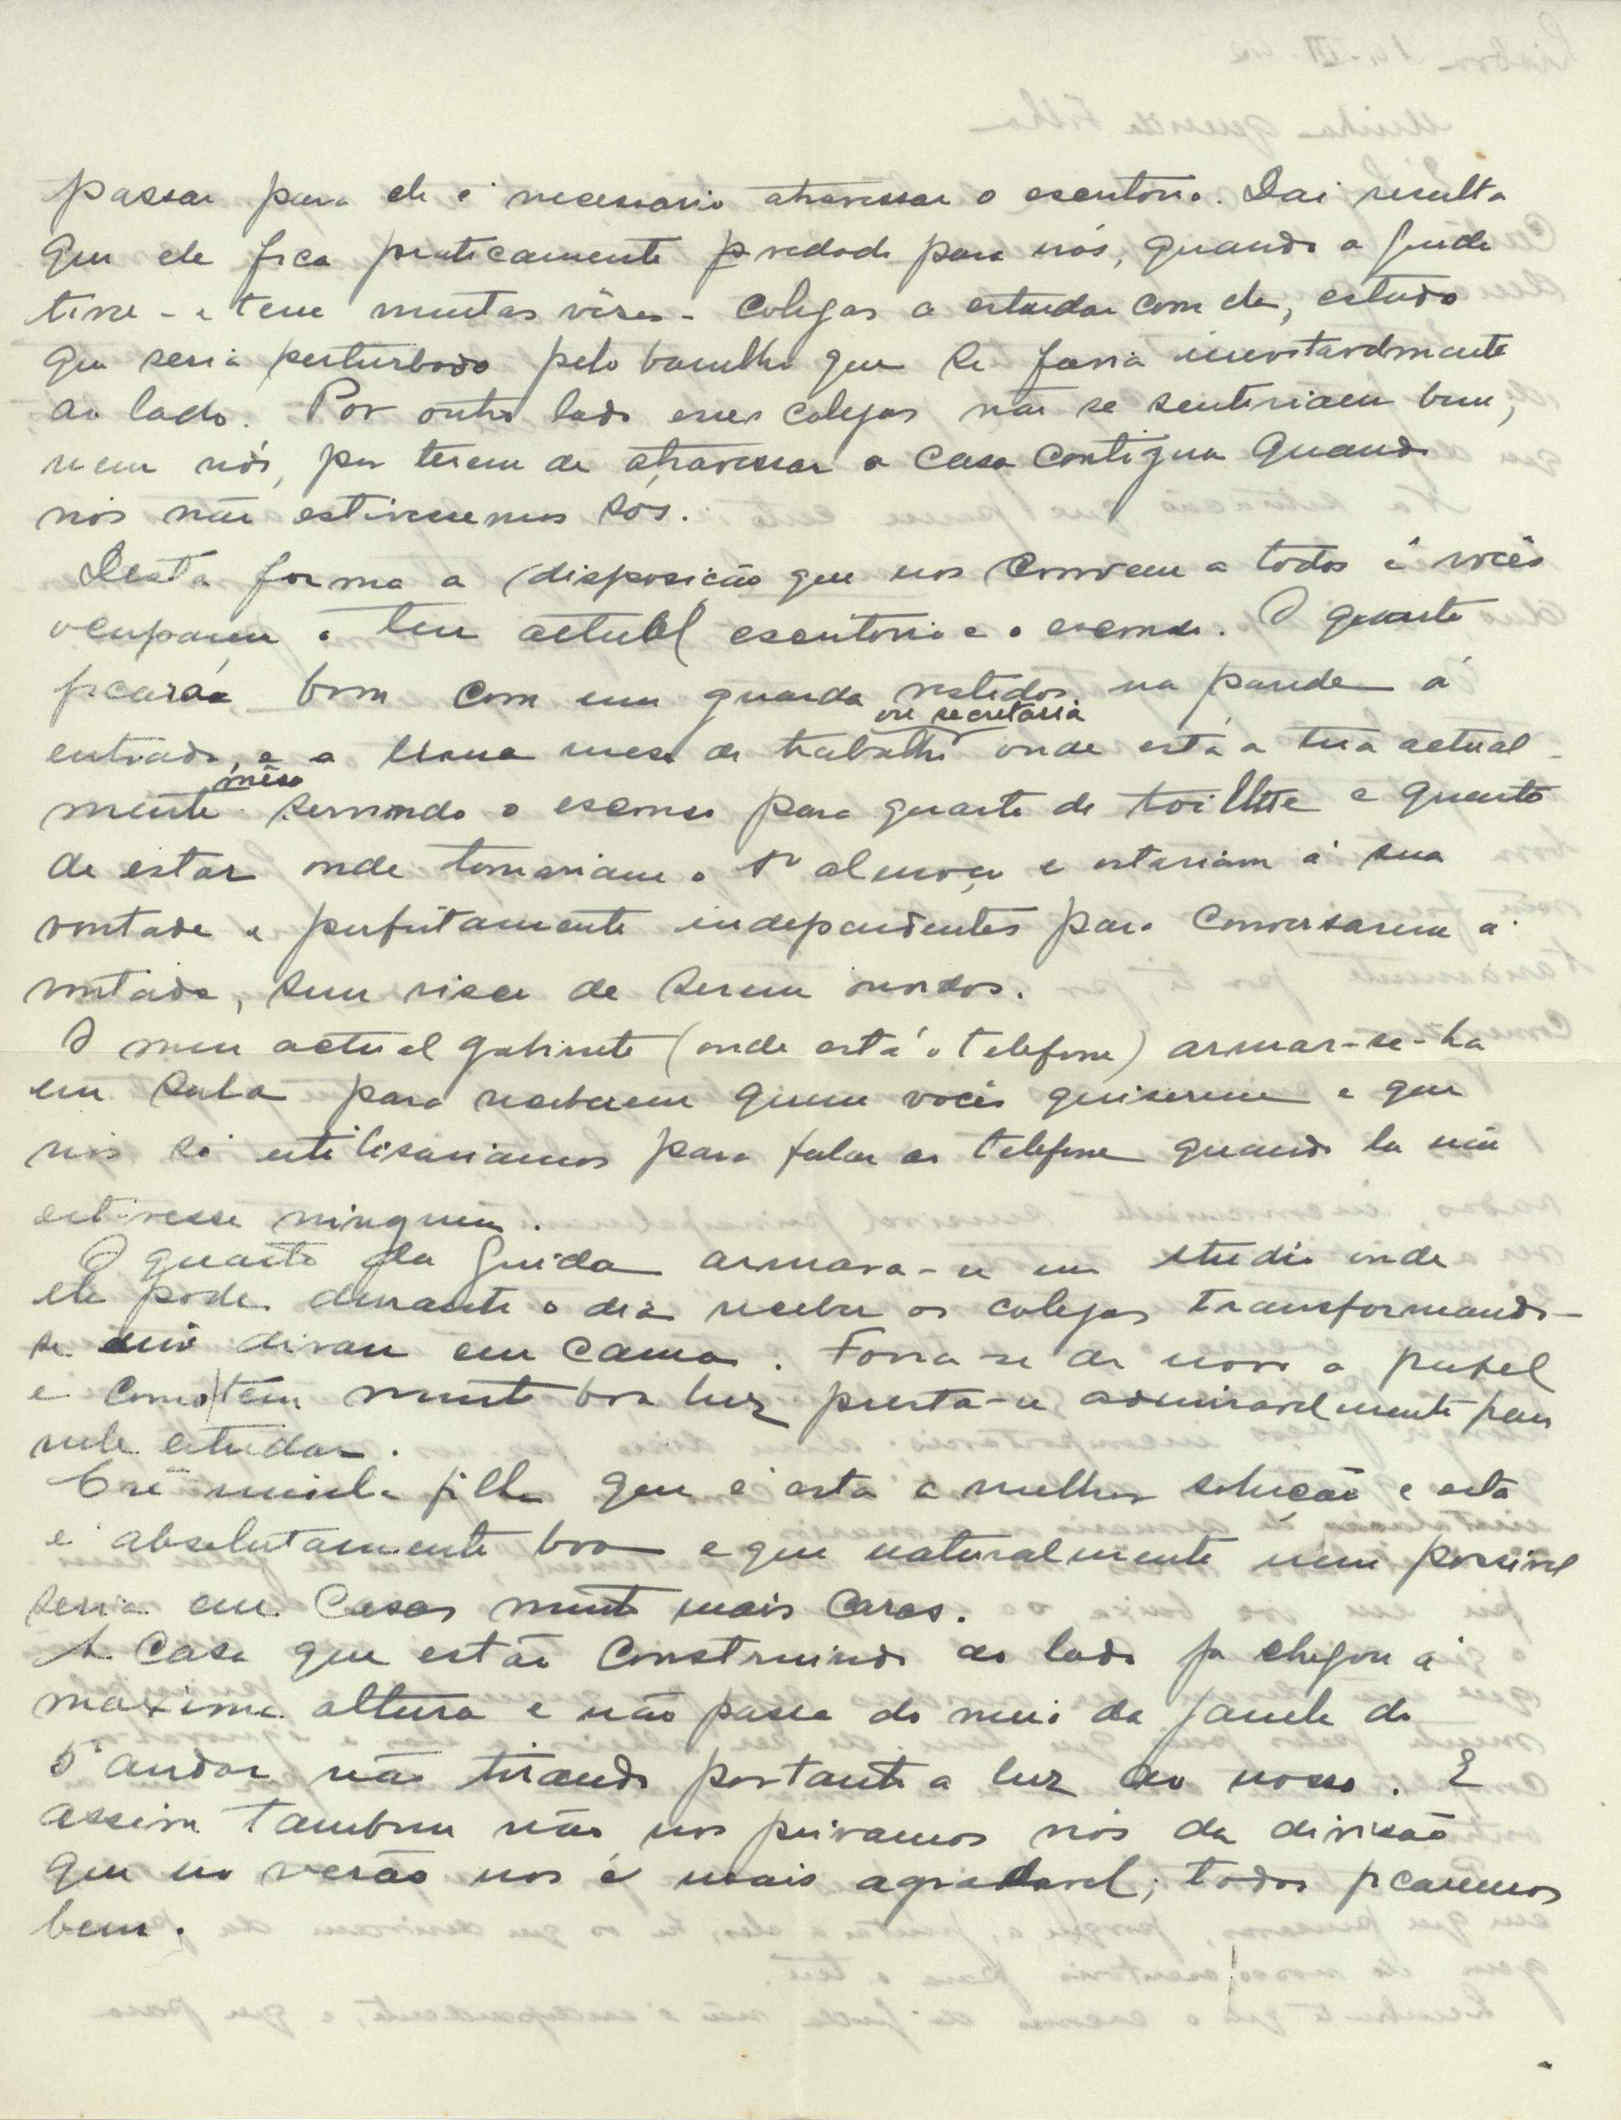 passar para ele é necessario atravessar o escritorio. Dai resulta
que ele fica praticamente vedado para nós, quando a Guida
tiver - e tem muitas vêses - colegas a estudar com ela, estudo
que seria perturbado pelo barulho que se faria inevitavelmente
ao lado. Por outro lado esses colegas não se sentiriam bem,
nem nós, por terem de atravessar a casa contigua quando
nós não estivessemos sós.
Desta forma a disposição que nos convem a todos é vocês
ocuparem o teu actual escritorio e o esconso. O quarto
ficará bom com um guarda vestidos na parede á
entrada, e a mesa de trabalho ou secretaria onde está a tua actual-
mente mêsa servindo o esconso para quarto de toilette e quarto
de estar onde tomariam o 1º almoço e estariam á sua
vontade e perfeitamente independentes para conversarem á
vontade, sem risco de serem ouvidos.
O meu actual gabinete (onde está o telefone) armar-se-ha
em sala para receberem quem vocês quiserem e que
nós só utilisariamos para falar ao telefone quando la não
estivesse ninguem.
O quarto da Guida armara-se em studio onde
ela pode durante o dia receber os colegas transformando-
se divan em cama. Forra-se de novo a papel
e como tem muito boa luz presta-se admiravelmente para
nele estudar.
Crê minha filha que é esta a melhor solução e esta
é absolutamente boa e que naturalmente nem possivel
seria em casas muito mais caras.
A casa que estão construindo ao lado ja chegou á
maxima altura e não passa do meio da janela do
5º andar não tirando portanto a luz ao nosso. E
assim tambem não nos privamos nós da divisão
que no verão nos é mais agradavel; todos ficaremos
bem.